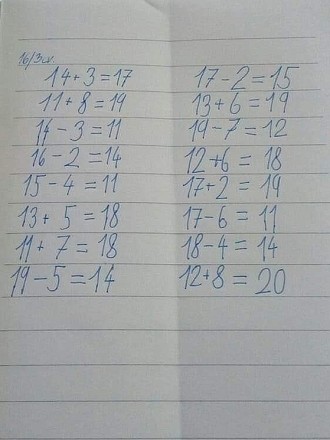 16/3св.
14+3=17 17-2=15
11+8=19 13+6=19
14-3=11 19-7=12
16-2=14 12+6=18
15-4=11 17+2=19
13+5=18 17-6=11
11+7=18 18-4=14
19-5=14 12+8=20